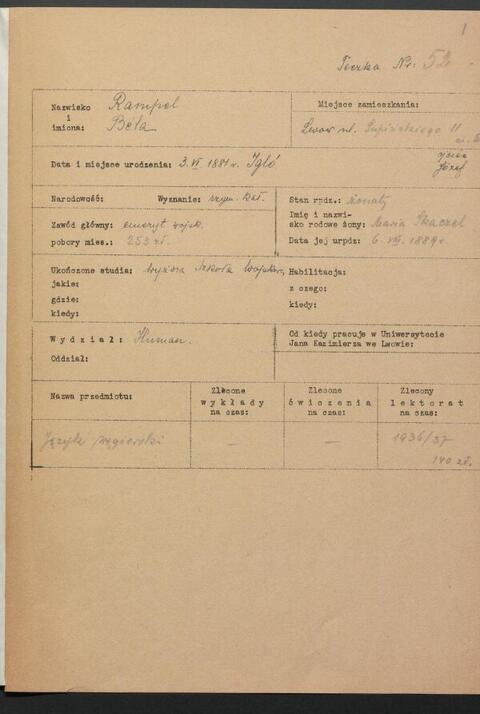 1
Teczka Nr: 52
Nazwisko
i
imiona:
Rampel
Béla
Miejsce zamieszkania:
Lwow ul. Supińskiego 11
Data i miejsce urodzenia: 3. VI 1881 r. Igló
ojciec
Józef
Narodowość: Wyznanie: rzym. kat.
Stan rpdz.: żonaty
Imię i nazwi-
sko rodowe żony: Maria Tkaczel
Data jej urpdz: 6. VIII. 1889 r.
Zawód główny: emeryt wojsk.
pobory mies.: 253 zł.
Ukończone studia: wyższa Szkoła Wojskow.
jakie:
gdzie:
kiedy:
Habilitacja:
z czego:
kiedy:
Wydział: Human.
Oddział:
Od kiedy pracuje w Uniwersytecie
Jana Kazimierza we Lwowie:
Nazwa przedmiotu:
Zlecone
wykłady
na czas:
Zlecone
ćwiczenia
na czas:
Zlecony
lektorat
na czas:
Język węgierski
—
—
1936/37
140 zł.